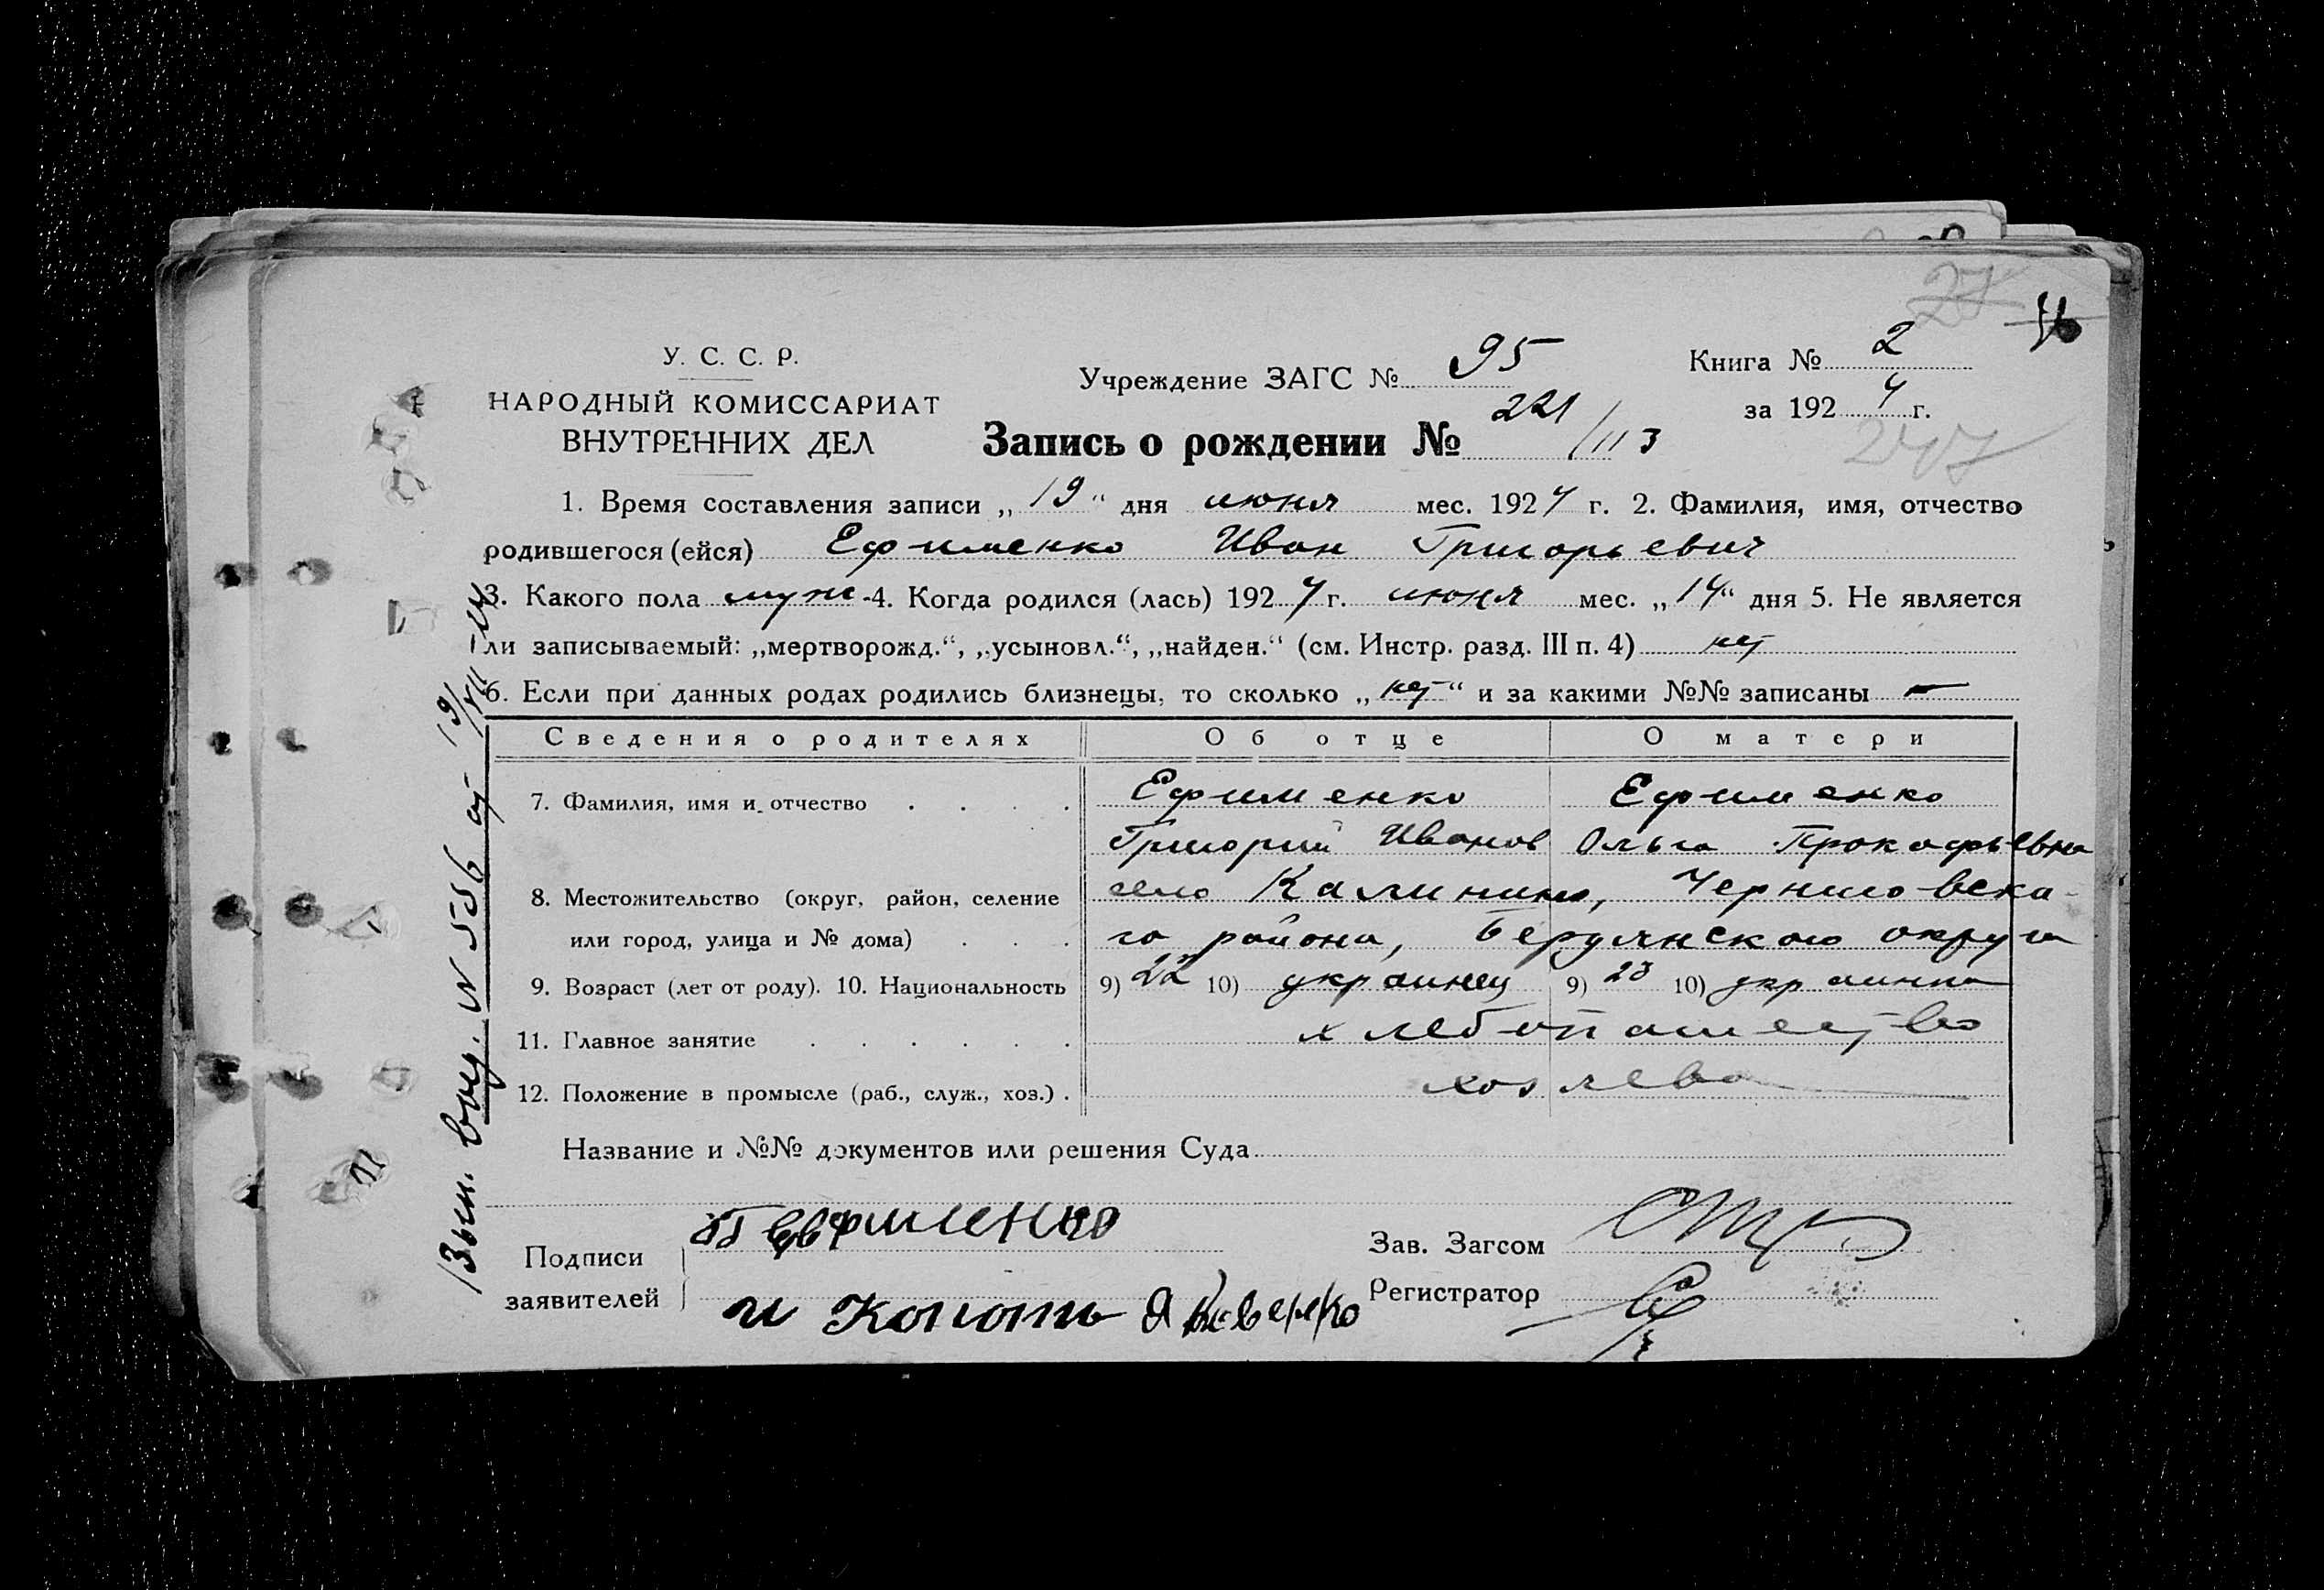 27 76
У. С. С. Р.
НАРОДНЫЙ КОМИССАРИАТ
ВНУТРЕННИХ ДЕЛ
Учреждение ЗАГС № 95
Книга № 2
за 1924 г.
Запись о рождении № 221/113
247
1. Время составления записи „19“ дня июня мес. 1924 г. 2. Фамилия, имя, отчество
родившегося (ейся) Ефименко Иван Григорьевич
3. Какого пола муж -4. Когда родился (лась) 1924 г. июня мес. „14“ дня 5. Не является
ли записываемый: „мертворожд.“, „усыновл.“, „найден.“ (см. Инстр. разд. III п. 4) нет
6. Если при данных родах родились близнецы, то сколько „нет“ и за какими №№ записаны —
Сведения о родителях Об отце О матери
7. Фамилия, имя и отчество . . . . Ефименко Ефименко
Григорий Иванов Ольга Прокофьевна
8. Местожительство (округ, район, селение село Калиновка, Черниговска-
или город, улица и № дома) . . . го района, Бердянского округа
9. Возраст (лет от роду). 10. Национальность 9) 22 10) украинец 9) 23 10) украинка
11. Главное занятие . . . . . . хлебопашество
12. Положение в промысле (раб., служ., хоз.) . хозяева
Название и №№ документов или решения Суда
Подписи
заявителей
Ефименко
и Копоть Яковенко
Зав. Загсом
Регистратор
Вып. выд. N 556 от 19/VII